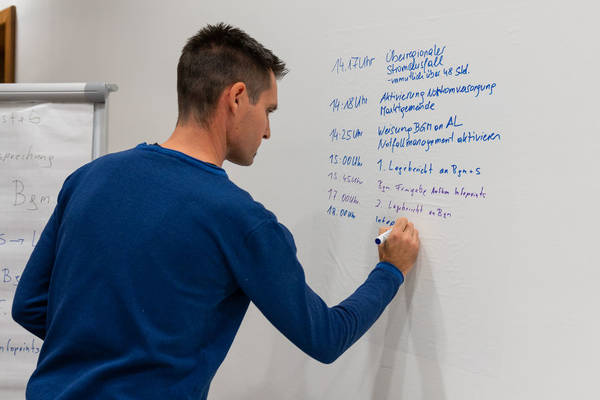 st+G
sprechung
Bgm
s → L
Bg
nfopoints
14.17 Uhr Überregionaler
Stromausfall
- vermutlich über 48 Std.
14:18 Uhr Aktivierung Notstromversorgung
Marktgemeinde
14:25 Uhr Weisung BGM an AL
Notfallmanagement aktivieren
15:00 Uhr 1. Lagebericht an Bgm + S
15.45 Uhr Bgm Freigabe Aufbau Infopoints
17.00 Uhr 2. Lagebericht an Bgm
18.00 Uhr Infop